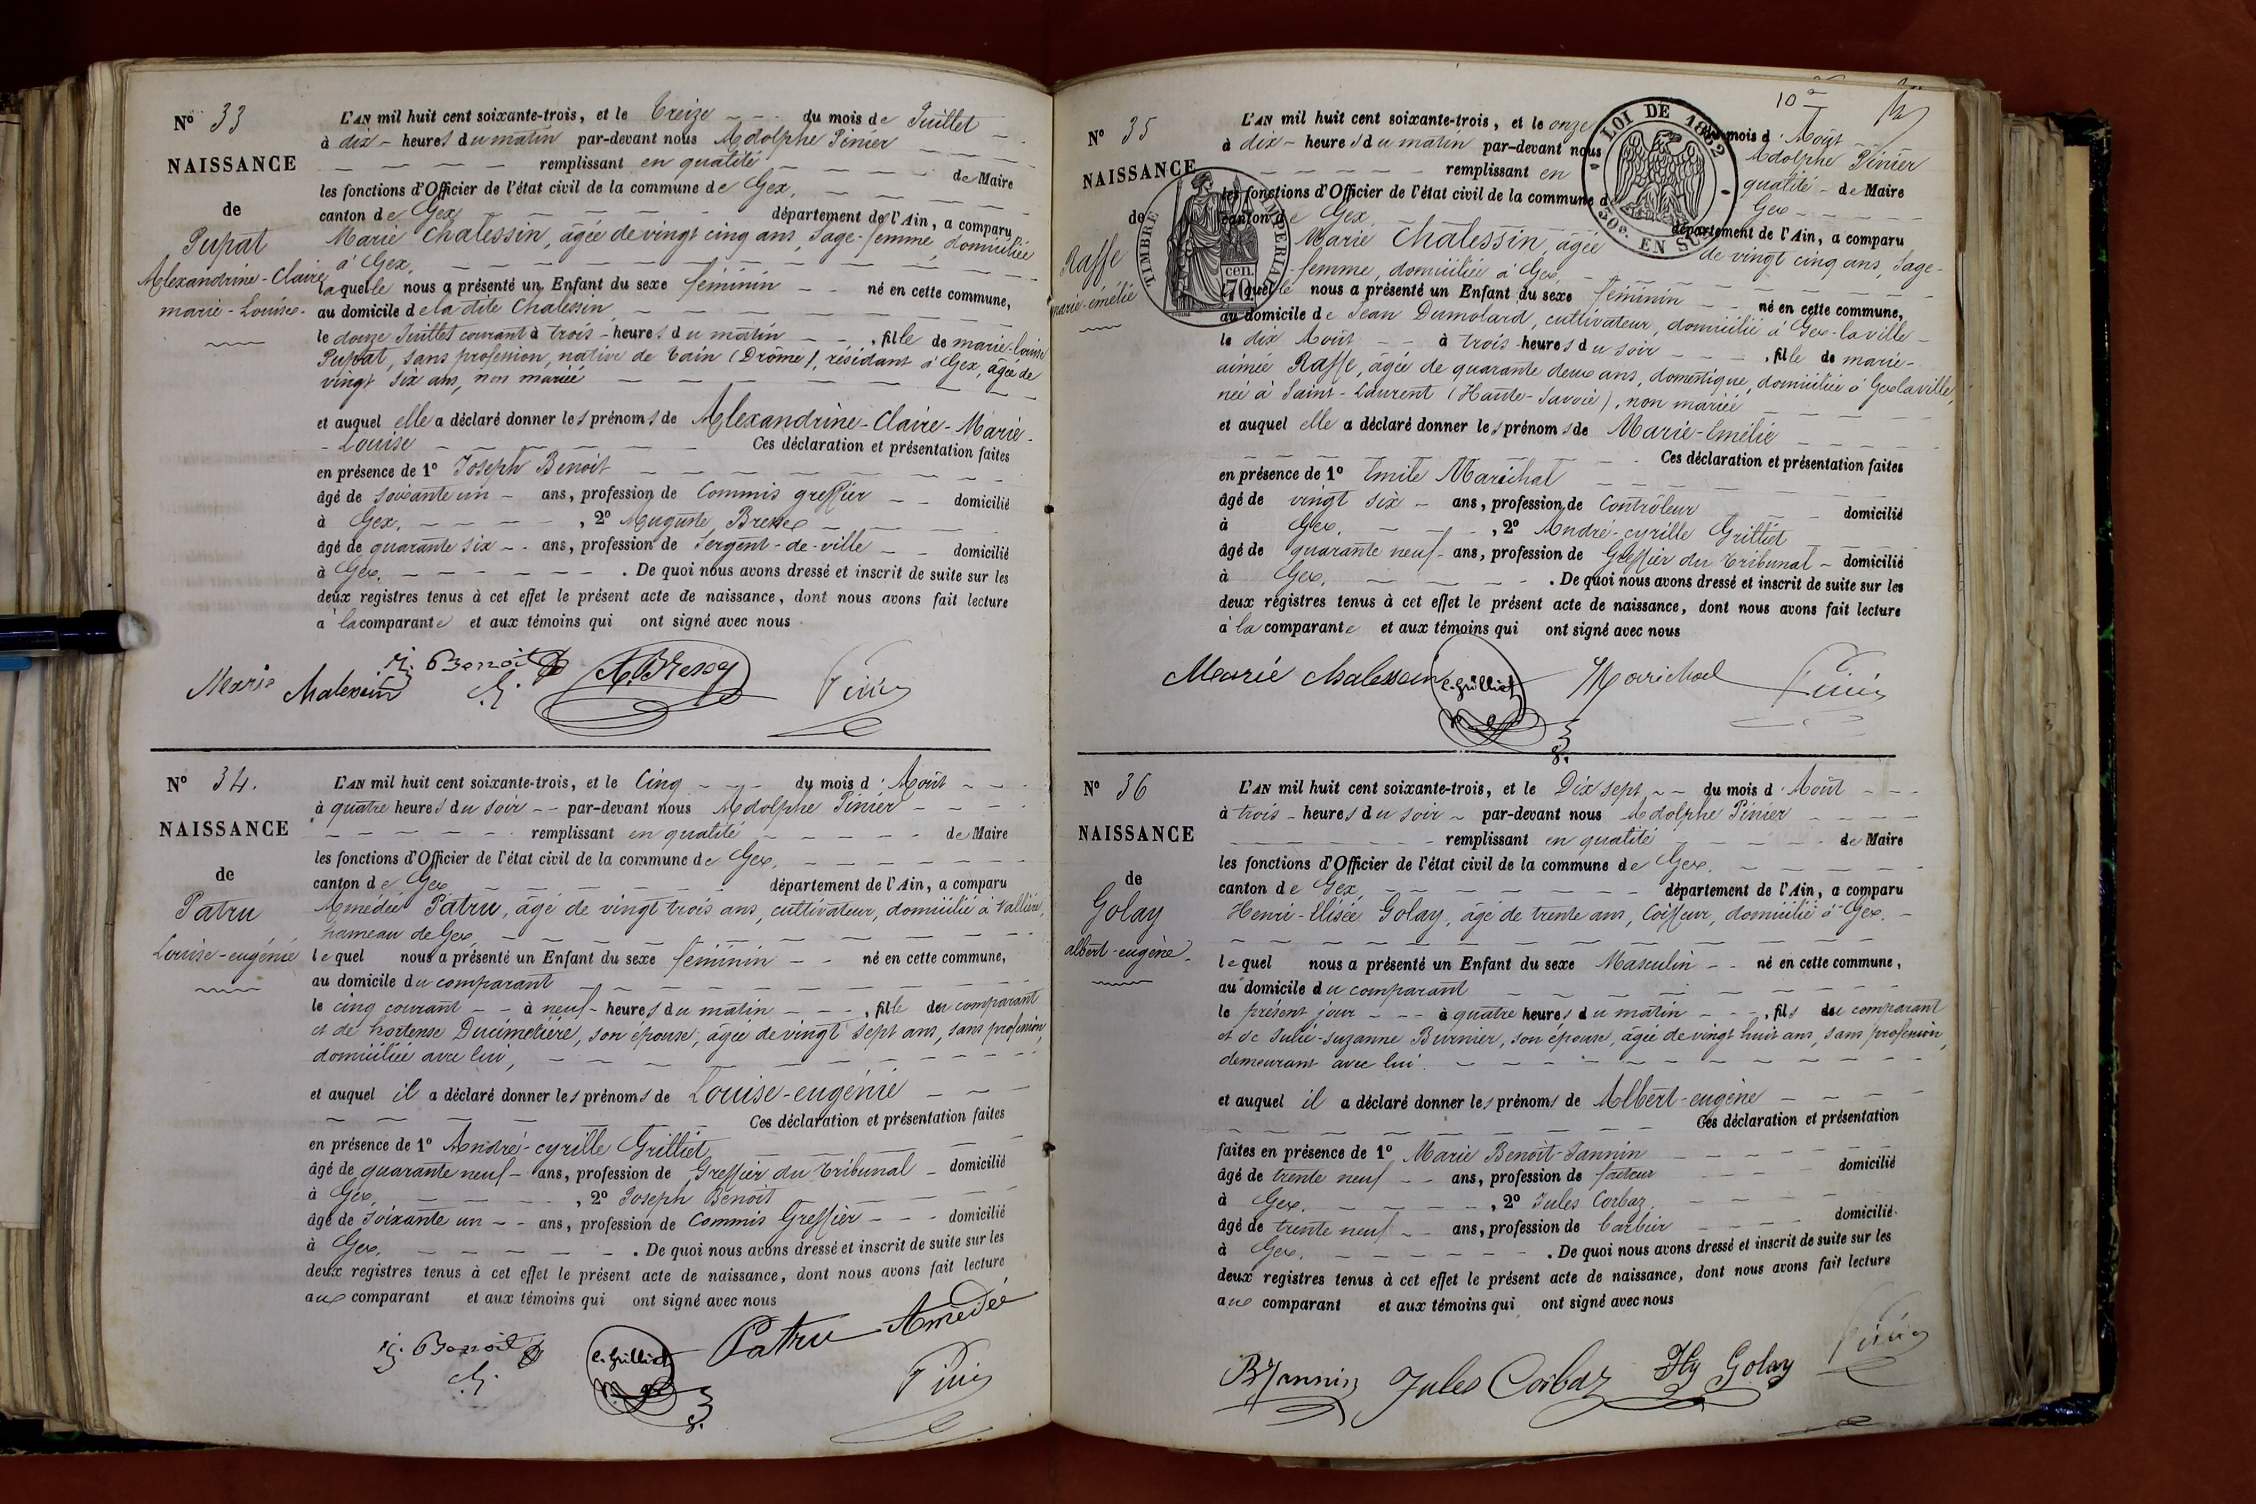 N° 33
NAISSANCE
de
Pupat
Alexandrine-Claire
marie-Louise.
L'AN mil huit cent soixante-trois, et le Treize du mois de Juillet
à dix heures du matin par-devant nous Adolphe Pinier
remplissant en qualité de Maire
les fonctions d'Officier de l'état civil de la commune de Gex,
canton de Gex département de l'Ain, a comparu
Marie Chalessin, âgée de vingt cinq ans, Sage-femme, domiciliée
à Gex,
laquelle nous a présenté un Enfant du sexe féminin né en cette commune,
au domicile de la dite Chalessin,
le douze Juillet courant à trois heures du matin, fille de marie-louise
Pupat, sans profession, native de Tain (Drôme), résidant à Gex, âgée de
vingt six ans, non mariée
et auquel elle a déclaré donner les prénoms de Alexandrine-Claire-Marie-
-Louise Ces déclaration et présentation faites
en présence de 1° Joseph Benoit
âgé de soixante un ans, profession de Commis greffier domicilié
à Gex, 2° Auguste Bressy
âgé de quarante six ans, profession de Sergent-de-ville domicilié
à Gex. De quoi nous avons dressé et inscrit de suite sur les
deux registres tenus à cet effet le présent acte de naissance, dont nous avons fait lecture
à la comparante et aux témoins qui ont signé avec nous
Marie Chalessin J. Benoit A. Bressy Pinier
N° 34.
NAISSANCE
de
Patru
Louise-eugénie
L'AN mil huit cent soixante-trois, et le Cinq du mois d'Août
à quatre heures du soir par-devant nous Adolphe Pinier
remplissant en qualité de Maire
les fonctions d'Officier de l'état civil de la commune de Gex,
canton de Gex département de l'Ain, a comparu
Amédée Patru, âgé de vingt trois ans, cultivateur, domicilié à Vallière,
hameau de Gex,
lequel nous a présenté un Enfant du sexe féminin né en cette commune,
au domicile du comparant
le cinq courant à neuf heures du matin, fille du comparant
et de hortense Ducimetière, son épouse, âgée de vingt sept ans, sans profession,
domiciliée avec lui,
et auquel il a déclaré donner les prénoms de Louise-eugénie
Ces déclaration et présentation faites
en présence de 1° André-cyrille Grilliet
âgé de quarante neuf ans, profession de Greffier du Tribunal domicilié
à Gex, 2° Joseph Benoit
âgé de soixante un ans, profession de Commis Greffier domicilié
à Gex. De quoi nous avons dressé et inscrit de suite sur les
deux registres tenus à cet effet le présent acte de naissance, dont nous avons fait lecture
aux comparant et aux témoins qui ont signé avec nous
J. Benoit C. Grilliet Patru Amédée
Pinier
10
N° 35
NAISSANCE
de
Raffe
marie-émélie
TIMBRE IMPERIAL
70 cen.
LOI DE 1862
50c. EN SUS
L'AN mil huit cent soixante-trois, et le onze du mois d'Août
à dix heures du matin par-devant nous Adolphe Pinier
remplissant en qualité de Maire
les fonctions d'Officier de l'état civil de la commune de Gex
canton de Gex département de l'Ain, a comparu
Marie Chalessin, âgée de vingt cinq ans, Sage-
-femme, domiciliée à Gex
laquelle nous a présenté un Enfant du sexe féminin né en cette commune,
au domicile de Jean Dumolard, cultivateur, domicilié à Gex-la ville
le dix Août à trois heures du soir, fille de marie-
aimée Raffe, âgée de quarante deux ans, domestique, domiciliée à Gex la ville,
née à Saint-Laurent (Haute-Savoie), non mariée
et auquel elle a déclaré donner les prénoms de Marie-émélie
Ces déclaration et présentation faites
en présence de 1° Emile Maréchal
âgé de vingt six ans, profession de Contrôleur domicilié
à Gex, 2° André-cyrille Grilliet
âgé de quarante neuf ans, profession de Greffier du tribunal domicilié
à Gex. De quoi nous avons dressé et inscrit de suite sur les
deux registres tenus à cet effet le présent acte de naissance, dont nous avons fait lecture
à la comparante et aux témoins qui ont signé avec nous
Marie Chalessin C. Grilliet Marichal Pinier
N° 36
NAISSANCE
de
Golay
albert-eugène.
L'AN mil huit cent soixante-trois, et le Dix sept du mois d'Août
à trois heures du soir par-devant nous Adolphe Pinier
remplissant en qualité de Maire
les fonctions d'Officier de l'état civil de la commune de Gex.
canton de Gex département de l'Ain, a comparu
Henri-Elisée Golay, âgé de trente ans, Coiffeur, domicilié à Gex.
lequel nous a présenté un Enfant du sexe Masculin né en cette commune,
au domicile du comparant
le présent jour à quatre heures du matin, fils du comparant
et de Julie-Suzanne Burnier, son épouse, âgée de vingt huit ans, sans profession,
demeurant avec lui.
et auquel il a déclaré donner les prénoms de Albert-eugène
Ces déclaration et présentation
faites en présence de 1° Marie Benoît-Jannin
âgé de trente neuf ans, profession de facteur domicilié
à Gex, 2° Jules Corbaz
âgé de trente neuf ans, profession de barbier domicilié
à Gex. De quoi nous avons dressé et inscrit de suite sur les
deux registres tenus à cet effet le présent acte de naissance, dont nous avons fait lecture
aux comparant et aux témoins qui ont signé avec nous
Bt Jannin Jules Corbaz Hy Golay Pinier